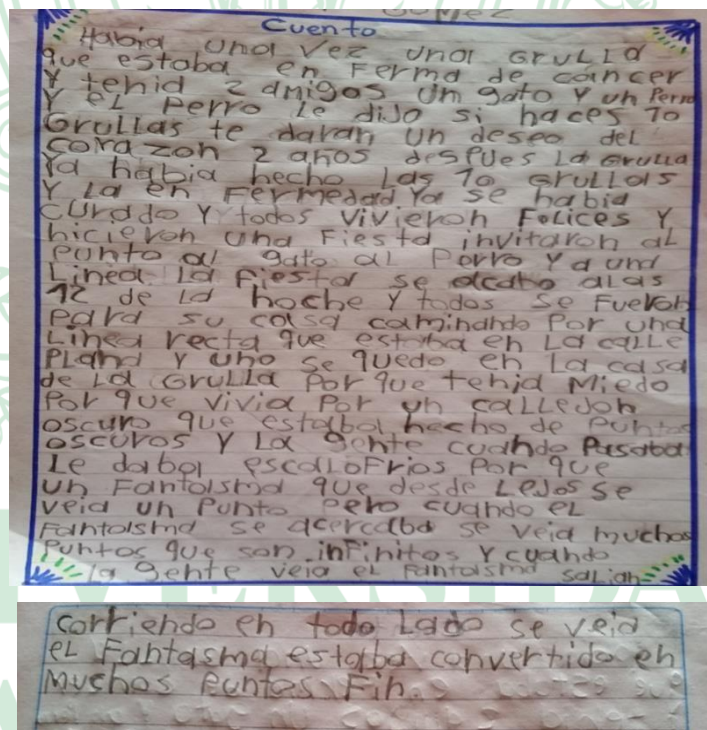 Cuento
Habia una vez una Grulla
que estaba en Ferma de cancer
Y tenia 2 amigos un gato Y un Perro
Y el perro le dijo si haces 10
Grullas te daran un deseo del
corazon 2 años despues La Grulla
Ya habia hecho Las 10 Grullas
Y La en Fermedad Ya se habia
curado Y todos vivieron Folices Y
hicieron una Fiesta invitaron al
punto al gato al Porro Y a una
Linea. La Fiesta se acabo alas
12 de la noche Y todos se Fueron
para su casa caminando Por una
Linea recta que estaba en La calle
Plana Y uno se quedo en La casa
de La Grulla Por que tenia Miedo
Por que vivia Por un callejon
oscuro que estaba hecho de Puntos
oscuros Y La gente cuando Pasaba
Le daba escaloFrios Por que
un Fantasma que desde Lejos se
veia un Punto Pero cuando el
Fantasma se acercaba se veia muchos
Puntos que son infinitos Y cuando
la gente veia el Fantasma salian
corriendo en todo Lado se veia
el Fantasma estaba convertido en
Muchos Puntos Fin.